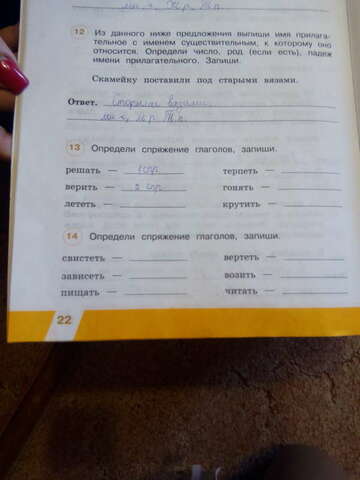 мн.ч. Пр. Т.п.
12 Из данного ниже предложения выпиши имя прилага-
тельное с именем существительным, к которому оно
относится. Определи число, род (если есть), падеж
имени прилагательного. Запиши.
Скамейку поставили под старыми вязами.
Ответ. старыми вязами
мн.ч.
13 Определи спряжение глаголов, запиши.
решать — 1 спр. терпеть —
верить — 2 спр. гонять —
лететь — крутить —
14 Определи спряжение глаголов, запиши.
свистеть — вертеть —
зависеть — возить —
пищать — читать —
22